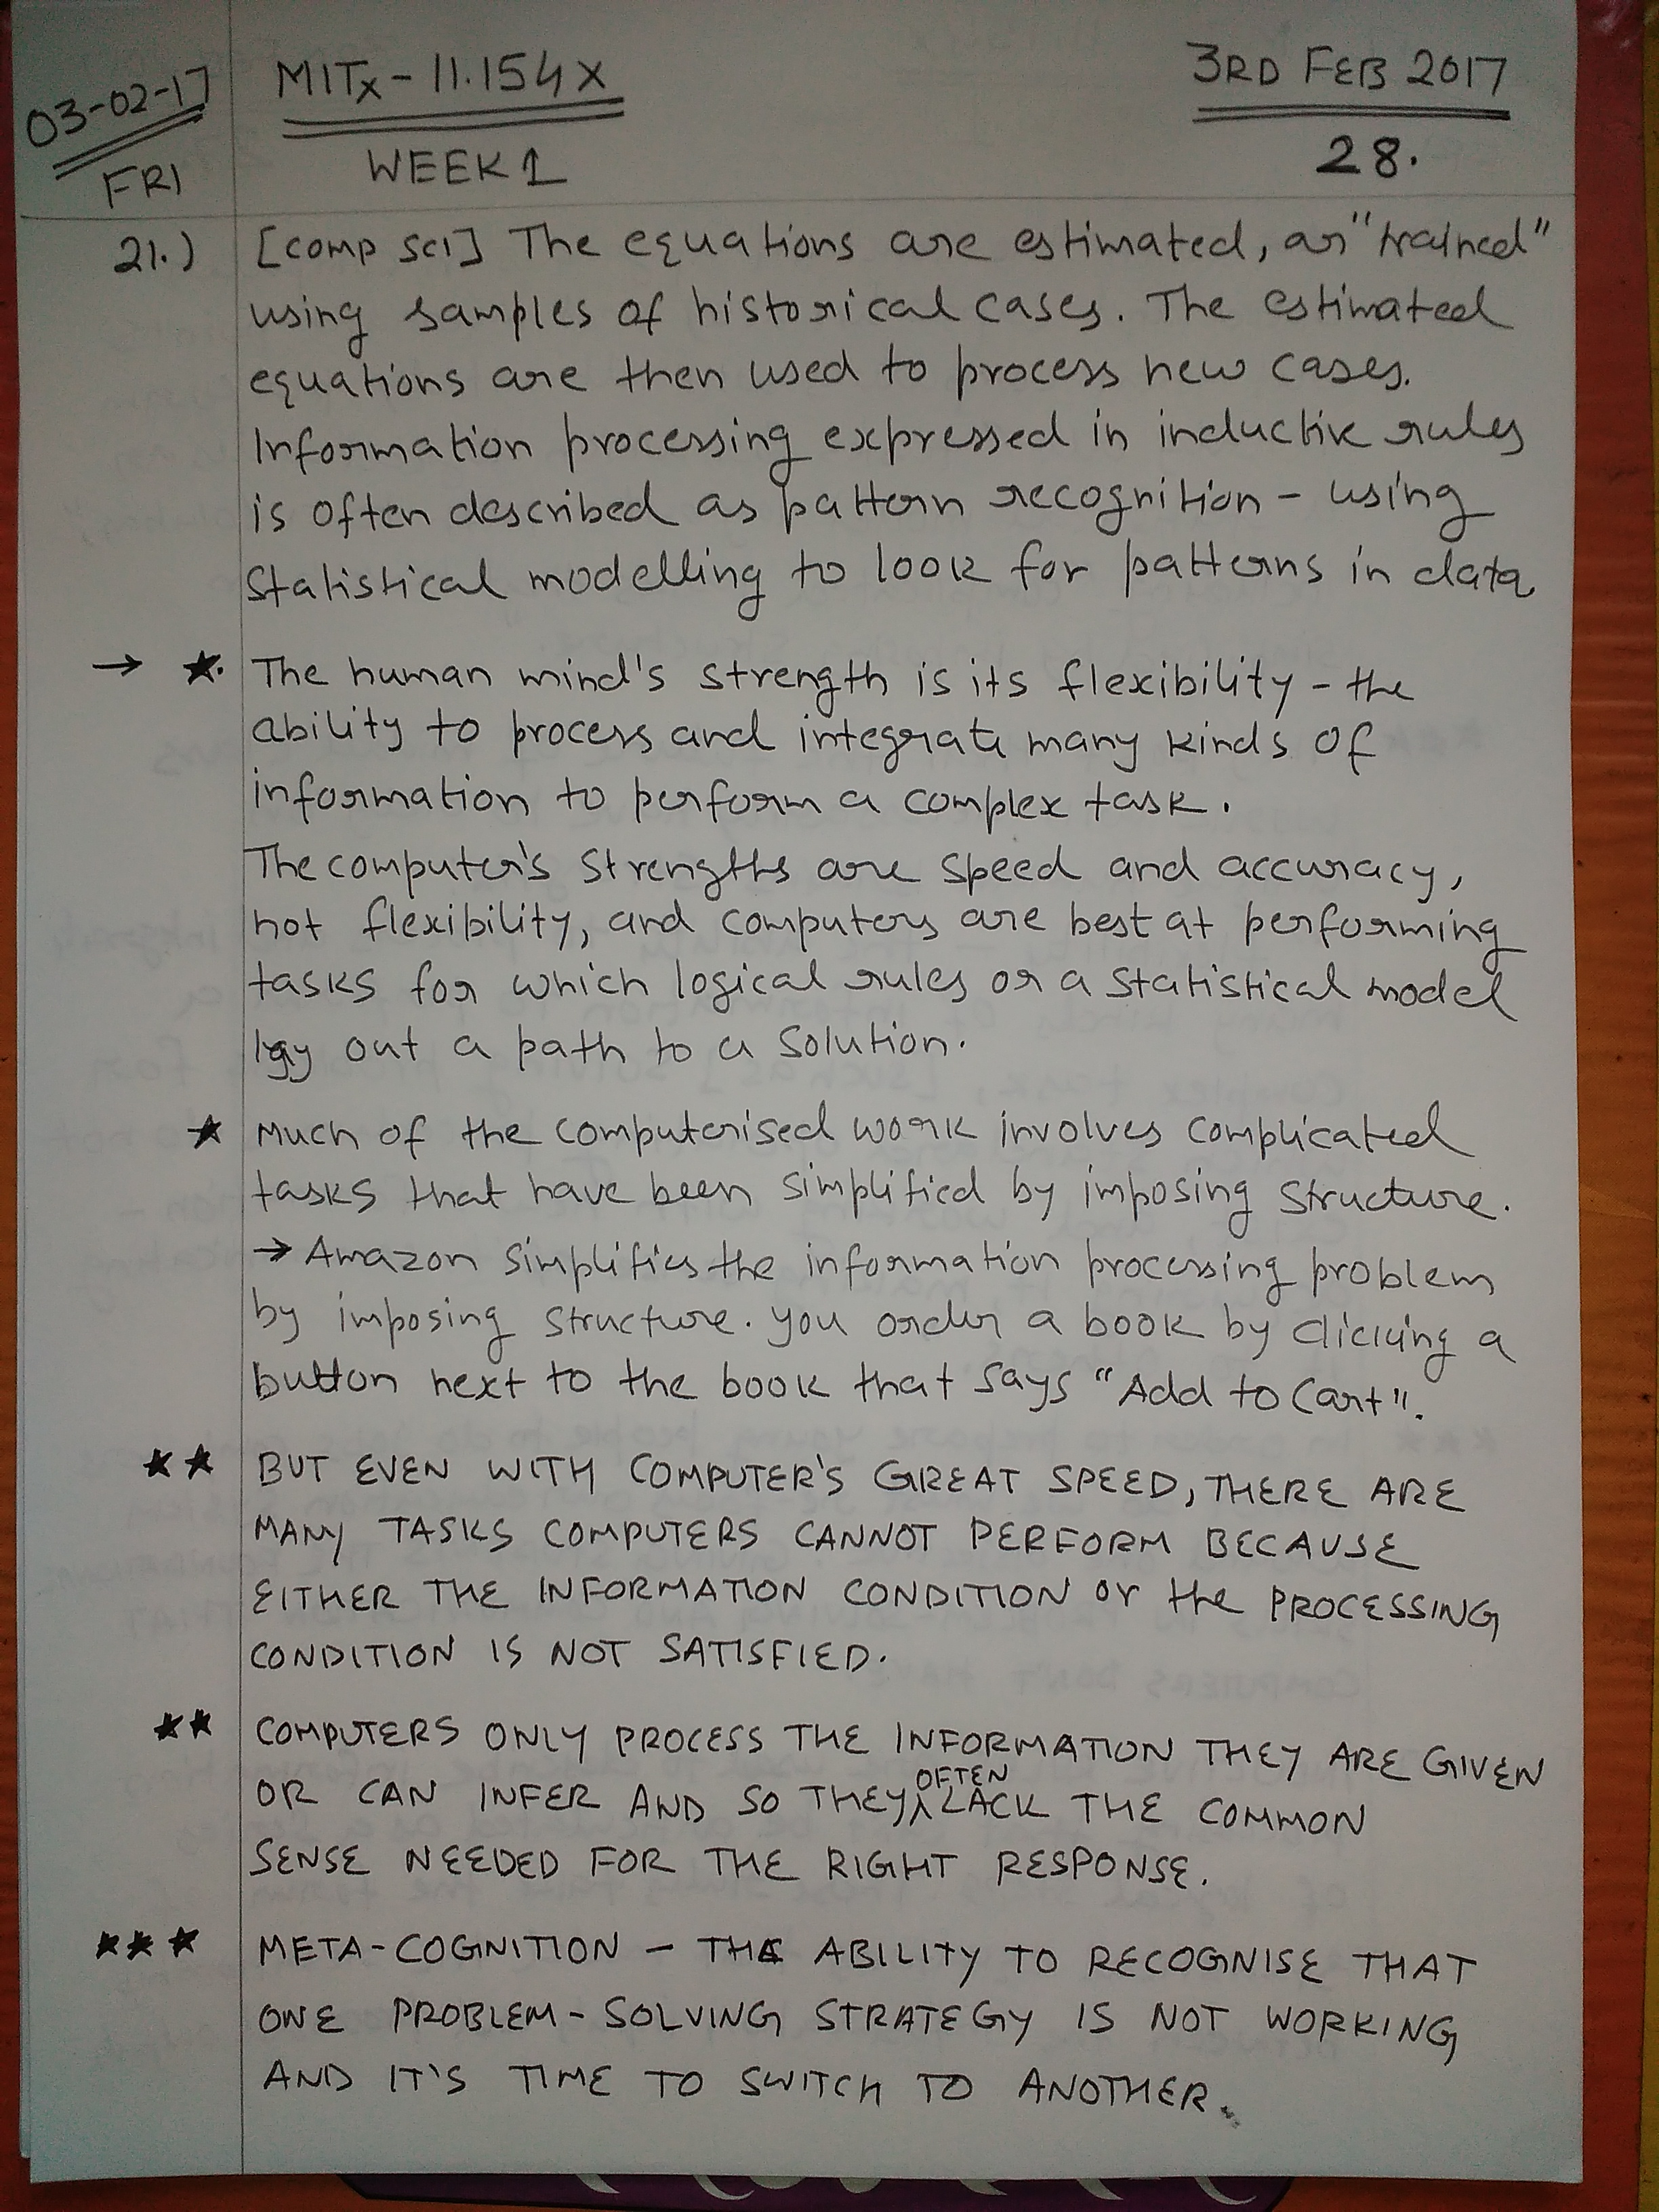 03-02-17
FRI
MITx - 11.154x
WEEK 1
3RD FEB 2017
28.
21.) [comp sci] The equations are estimated, or "trained"
using samples of historical cases. The estimated
equations are then used to process new cases.
Information processing expressed in inductive rules
is often described as pattern recognition - using
statistical modelling to look for patterns in data
→ ★. The human mind's strength is its flexibility - the
ability to process and integrate many kinds of
information to perform a complex task.
The computer's strengths are speed and accuracy,
not flexibility, and computers are best at performing
tasks for which logical rules or a statistical model
lay out a path to a solution.
★ Much of the computerised work involves complicated
tasks that have been simplified by imposing structure.
→ Amazon simplifies the information processing problem
by imposing structure. You order a book by clicking a
button next to the book that says "Add to Cart".
★★ BUT EVEN WITH COMPUTER'S GREAT SPEED, THERE ARE
MANY TASKS COMPUTERS CANNOT PERFORM BECAUSE
EITHER THE INFORMATION CONDITION or the PROCESSING
CONDITION IS NOT SATISFIED.
★★ COMPUTERS ONLY PROCESS THE INFORMATION THEY ARE GIVEN
OR CAN INFER AND SO THEY OFTEN LACK THE COMMON
SENSE NEEDED FOR THE RIGHT RESPONSE.
★★★ META-COGNITION - THE ABILITY TO RECOGNISE THAT
ONE PROBLEM-SOLVING STRATEGY IS NOT WORKING
AND IT'S TIME TO SWITCH TO ANOTHER.